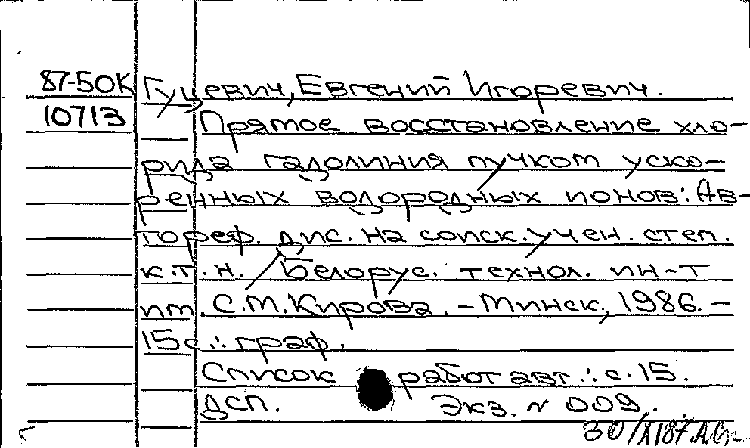 87-50К Гуцевич, Евгений Игоревич.
10713 Прямое восстановление хло-
рида гадолиния пучком уско-
ренных водородных ионов: Ав-
тореф. дис. на соиск. учен. степ.
к.т.н. / Белорус. технол. ин-т
им. С.М. Кирова. - Минск, 1986. -
15с.: граф.
Список работ авт.: с. 15.
ДСП. Экз. N 009.